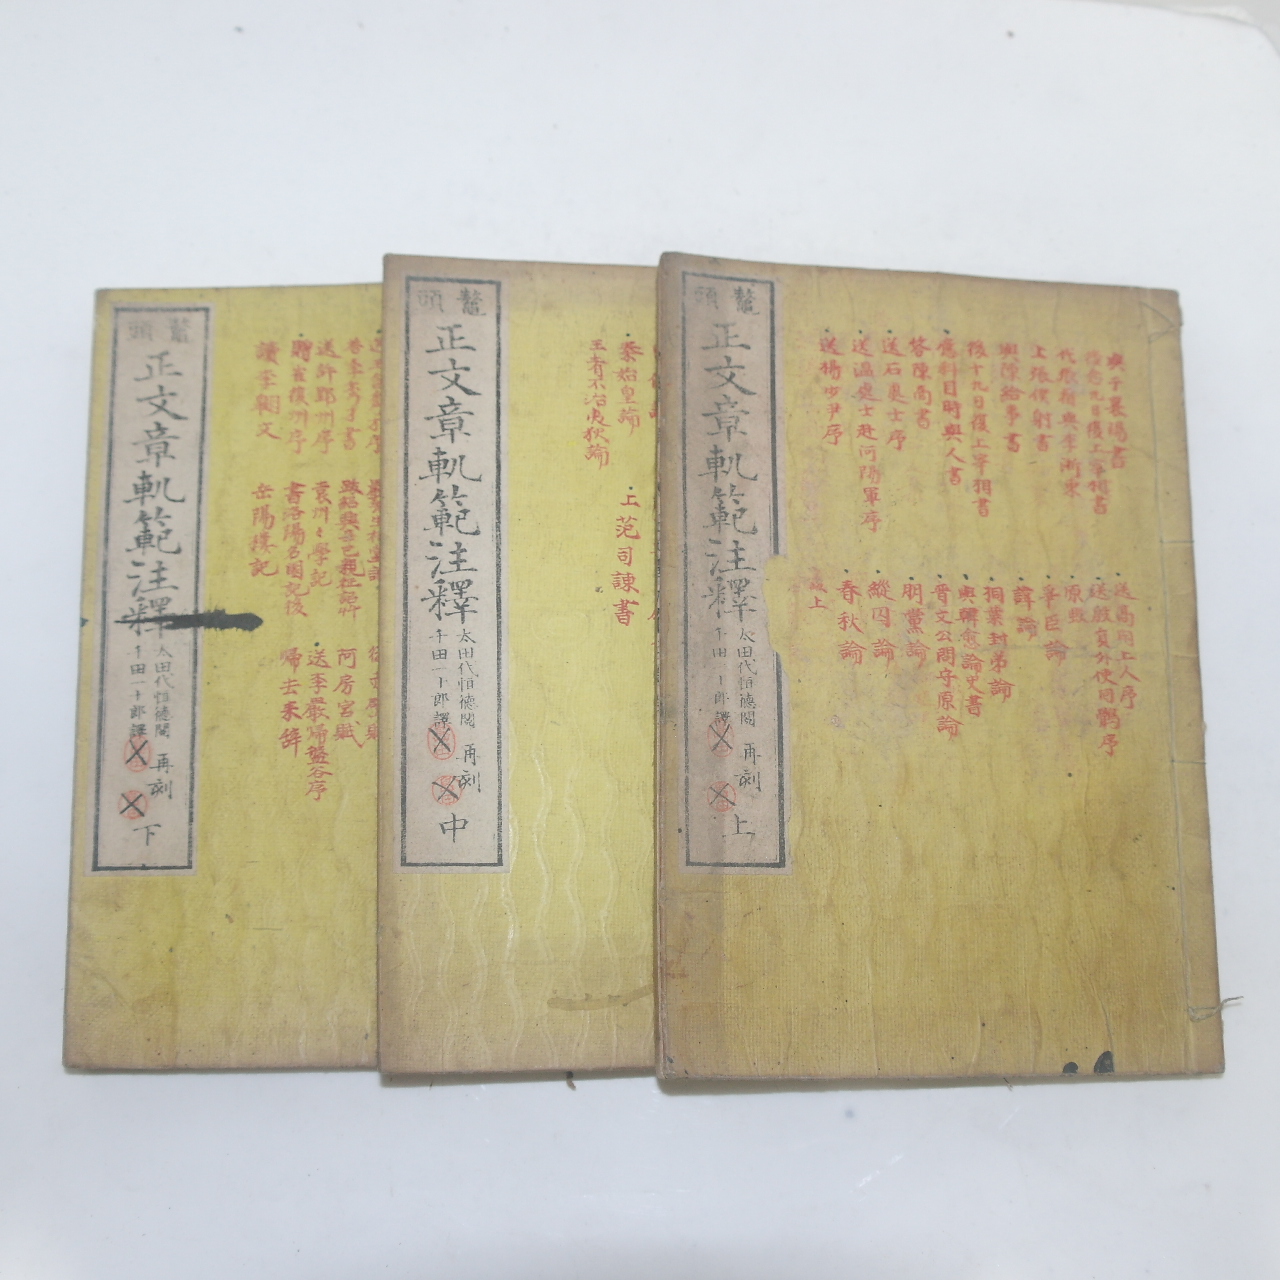 鼇頭
正文章軌範注釋
太田代恒德閲
千田一十郎譯
再刻
上
與于襄陽書
後廿九日復上宰相書
代張籍與李浙東
上張僕射書
與陳給事書
後十九日復上宰相書
應科目時與人書
答陳商書
送石處士序
送溫處士赴河陽軍序
送楊少尹序
送高閑上人序
送殷員外使回鶻序
原毀
爭臣論
諱論
桐葉封弟論
與韓愈論史書
晋文公問守原論
朋黨論
縱囚論
春秋論
鼇頭
正文章軌範注釋
太田代恒德閲
千田一十郎譯
再刻
中
秦始皇論
王者不治夷狄論
上范司諫書
鼇頭
正文章軌範注釋
太田代恒德閲
千田一十郎譯
再刻
下
答李秀才書
送許郢州序
贈崔復州序
讀李翺文
袁州州學記
書洛陽名園記後
岳陽樓記
阿房宮賦
送李愿歸盤谷序
歸去来辞